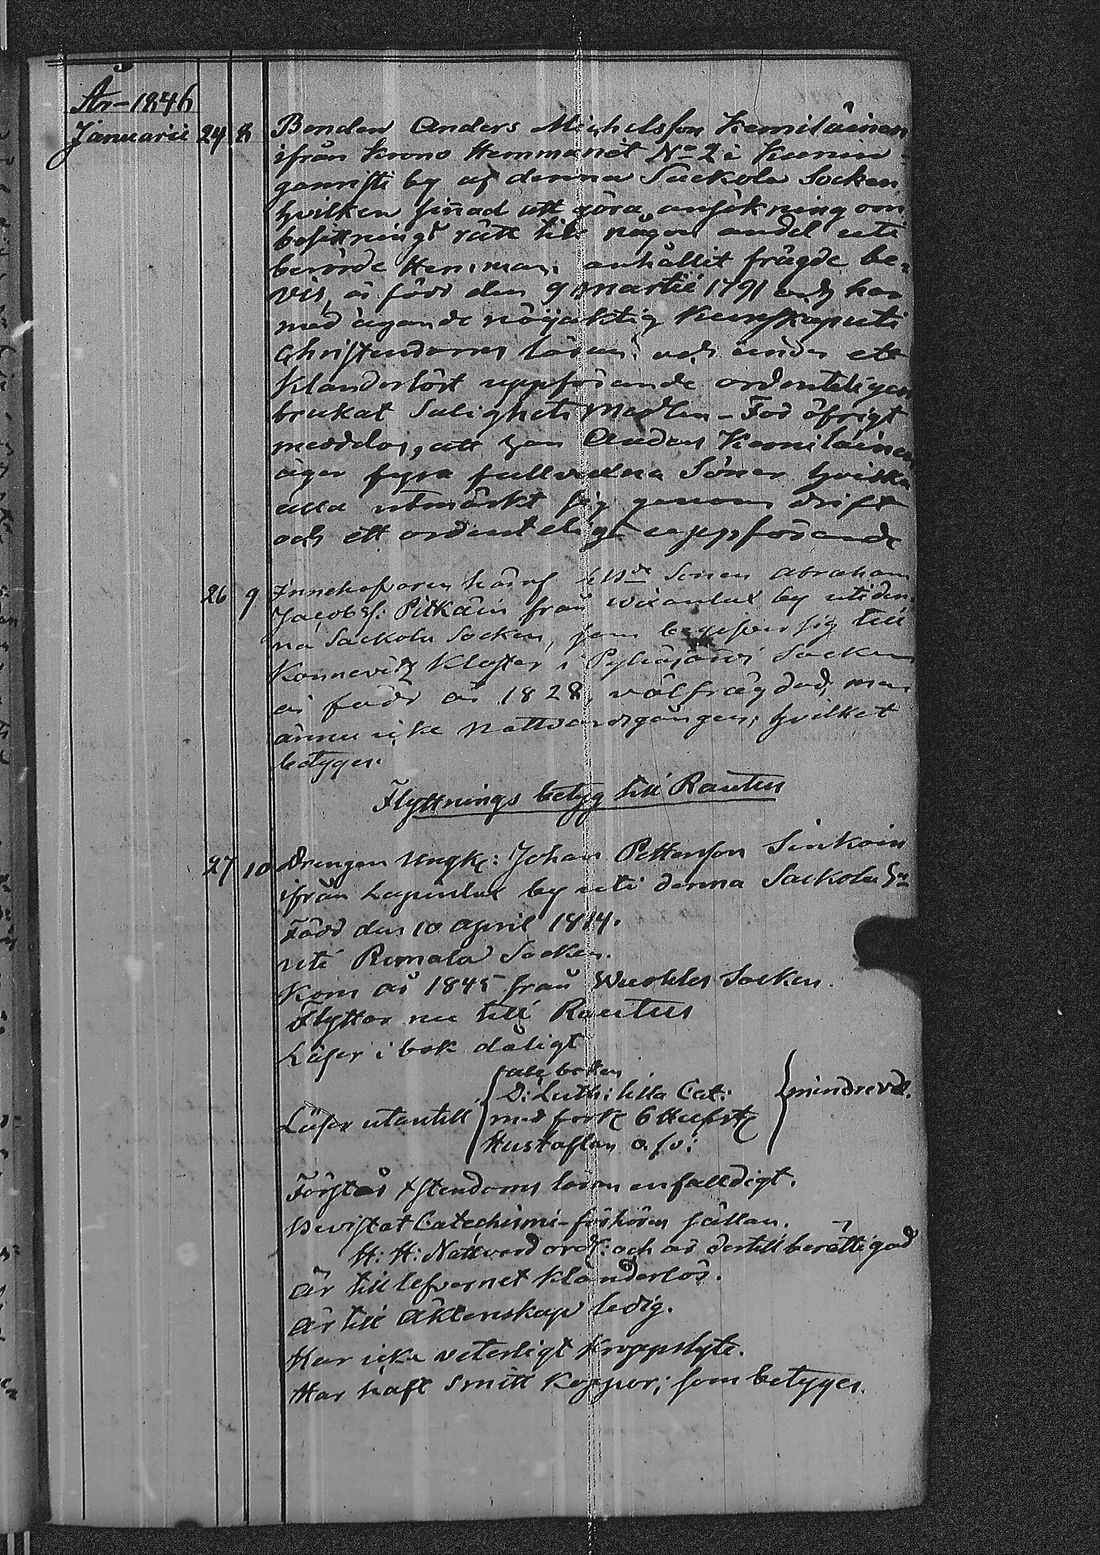 År 1846
Januarii 24 8 Bonden Anders Michelsson Kemiläinen
ifrån Krono Hemmanet No 2 i
by af denna Sackola Socken,
hvilken sinad att göra ansökning om
besittnings rätt till någon andel uti
berörde Hemman, anhållit frägde be-
vis, är född den 9 Martii 1791 och har
med ägande nöjaktig Kunskap uti
Christendoms läran, och under ett
klanderlöst uppförande ordenteligen
brukat Salighets Medlen - För öfrigt
meddelas, att han Anders Kemiläinen
äger fyra fullvuxna Söner hvilka
alla utmärkt sig genom drift
och ett ordenteligt uppförande
26 9 Innehafvaren häraf Sonen Abraham
Jacobs. Pitkäin från by uti den-
na Sackola Socken, som begifver sig till
Konnevitz Kloster i Pyhäjärvi Socken
är född år 1828, välfrägdad, men
ännu icke Nattvardgången; hvilket
betygar.
Flyttnings betyg till Rautus
27 10 Drengen Ungk: Johan Pettersson Sinkoin
ifrån Lapinlax by uti denna Sackola Sn
Född den 10 April 1814.
uti Socken.
Kom år 1845 från Socken.
Flyttar nu till Rautus
Läser i bok dåligt
abc boken
D: Luth: lilla Cat: mindre väl.
Läser utantill med fork 6 Hufst
Hustaflan o. s. v.
Förstår Xstendoms läran enfalldigt.
Bevistat Catechismi-förhören sällan.
H: H: Nattvard ord: och är dertill berättigad
Är till lefvernet klanderlös.
Är till Äktenskap ledig.
Har icke veterligt kroppslyte.
Har haft Smitt Koppor; som betygar.